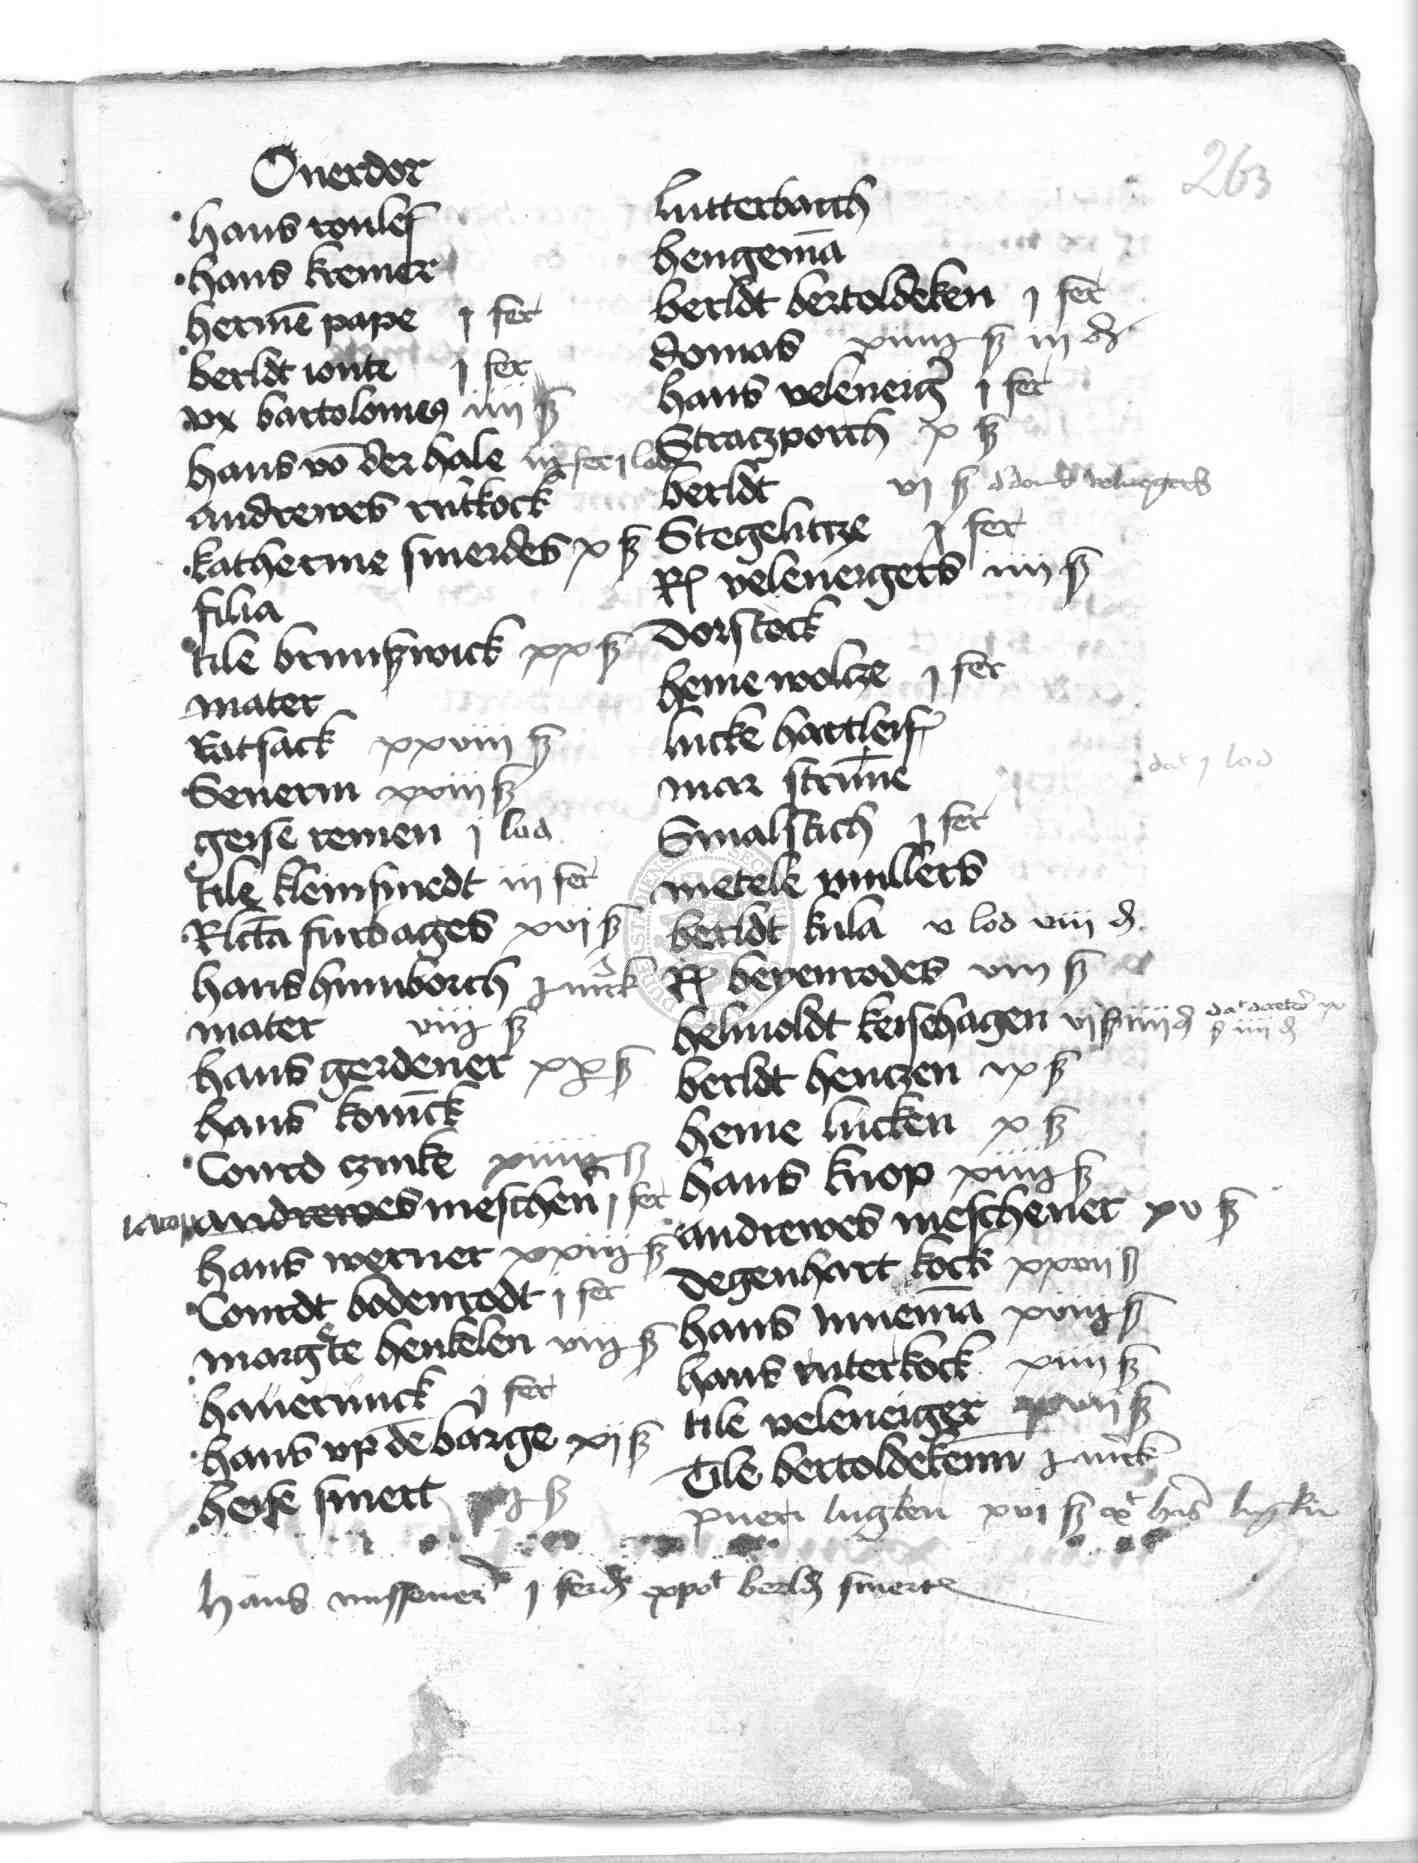 263
Ouerdor
hans roulef
hans kremer
hermē pape j fer
berldt ionte j fer
vx bartolomeꝰ iiii ß
hans vō der hale fer j lod
andrewes rutkock
katherine smerdes x ß
filia
tile brunßwick xx ß
mater
Ratsack xxviii ß
Seuerin xxiii ß
geyse remen j lod
tile kleinsmedt iii fer
Rlcta surdages xvi ß
hans humborch mrck
mater viij ß
hans gerdener xx ß
hans konīck
Conrd czinke ß
iacop andrewes meschen j fer
hans werner xxiij ß
Conrdt bodenrodt j fer
margrete henkelen viij ß
hauerunck j fer
hans vp dē barge xi ß
heise smert ß
lutterbarch
hengemā
berldt bertoldeken j fer
domas xiiij ß iii
hans veleneiger j fer
Straczporch x ß
berldt vi ß
Stegelitcze j fer
Rl veleneigers iiii ß
dorstock
heine woltze j fer
lucke hartleif
mar strume
dat j lod
Smalstich j fer
metele mullers
berldt kula v lod viii d
Rl beyenrodes viii ß
helmoldt keisehagen vi ß iiii d
ß iiii d
berldt henczen ix ß
heine lucken x ß
hans knop xiiij ß
andrewes meschener xv ß
degenhart kock xxvii ß
hans xviij ß
hans ruterkock xiiii ß
tile veleneiger ß
Tile bertoldekenn mrck
pueri lugken xvi ß hans lugken
hans missener j ferd berld smerte